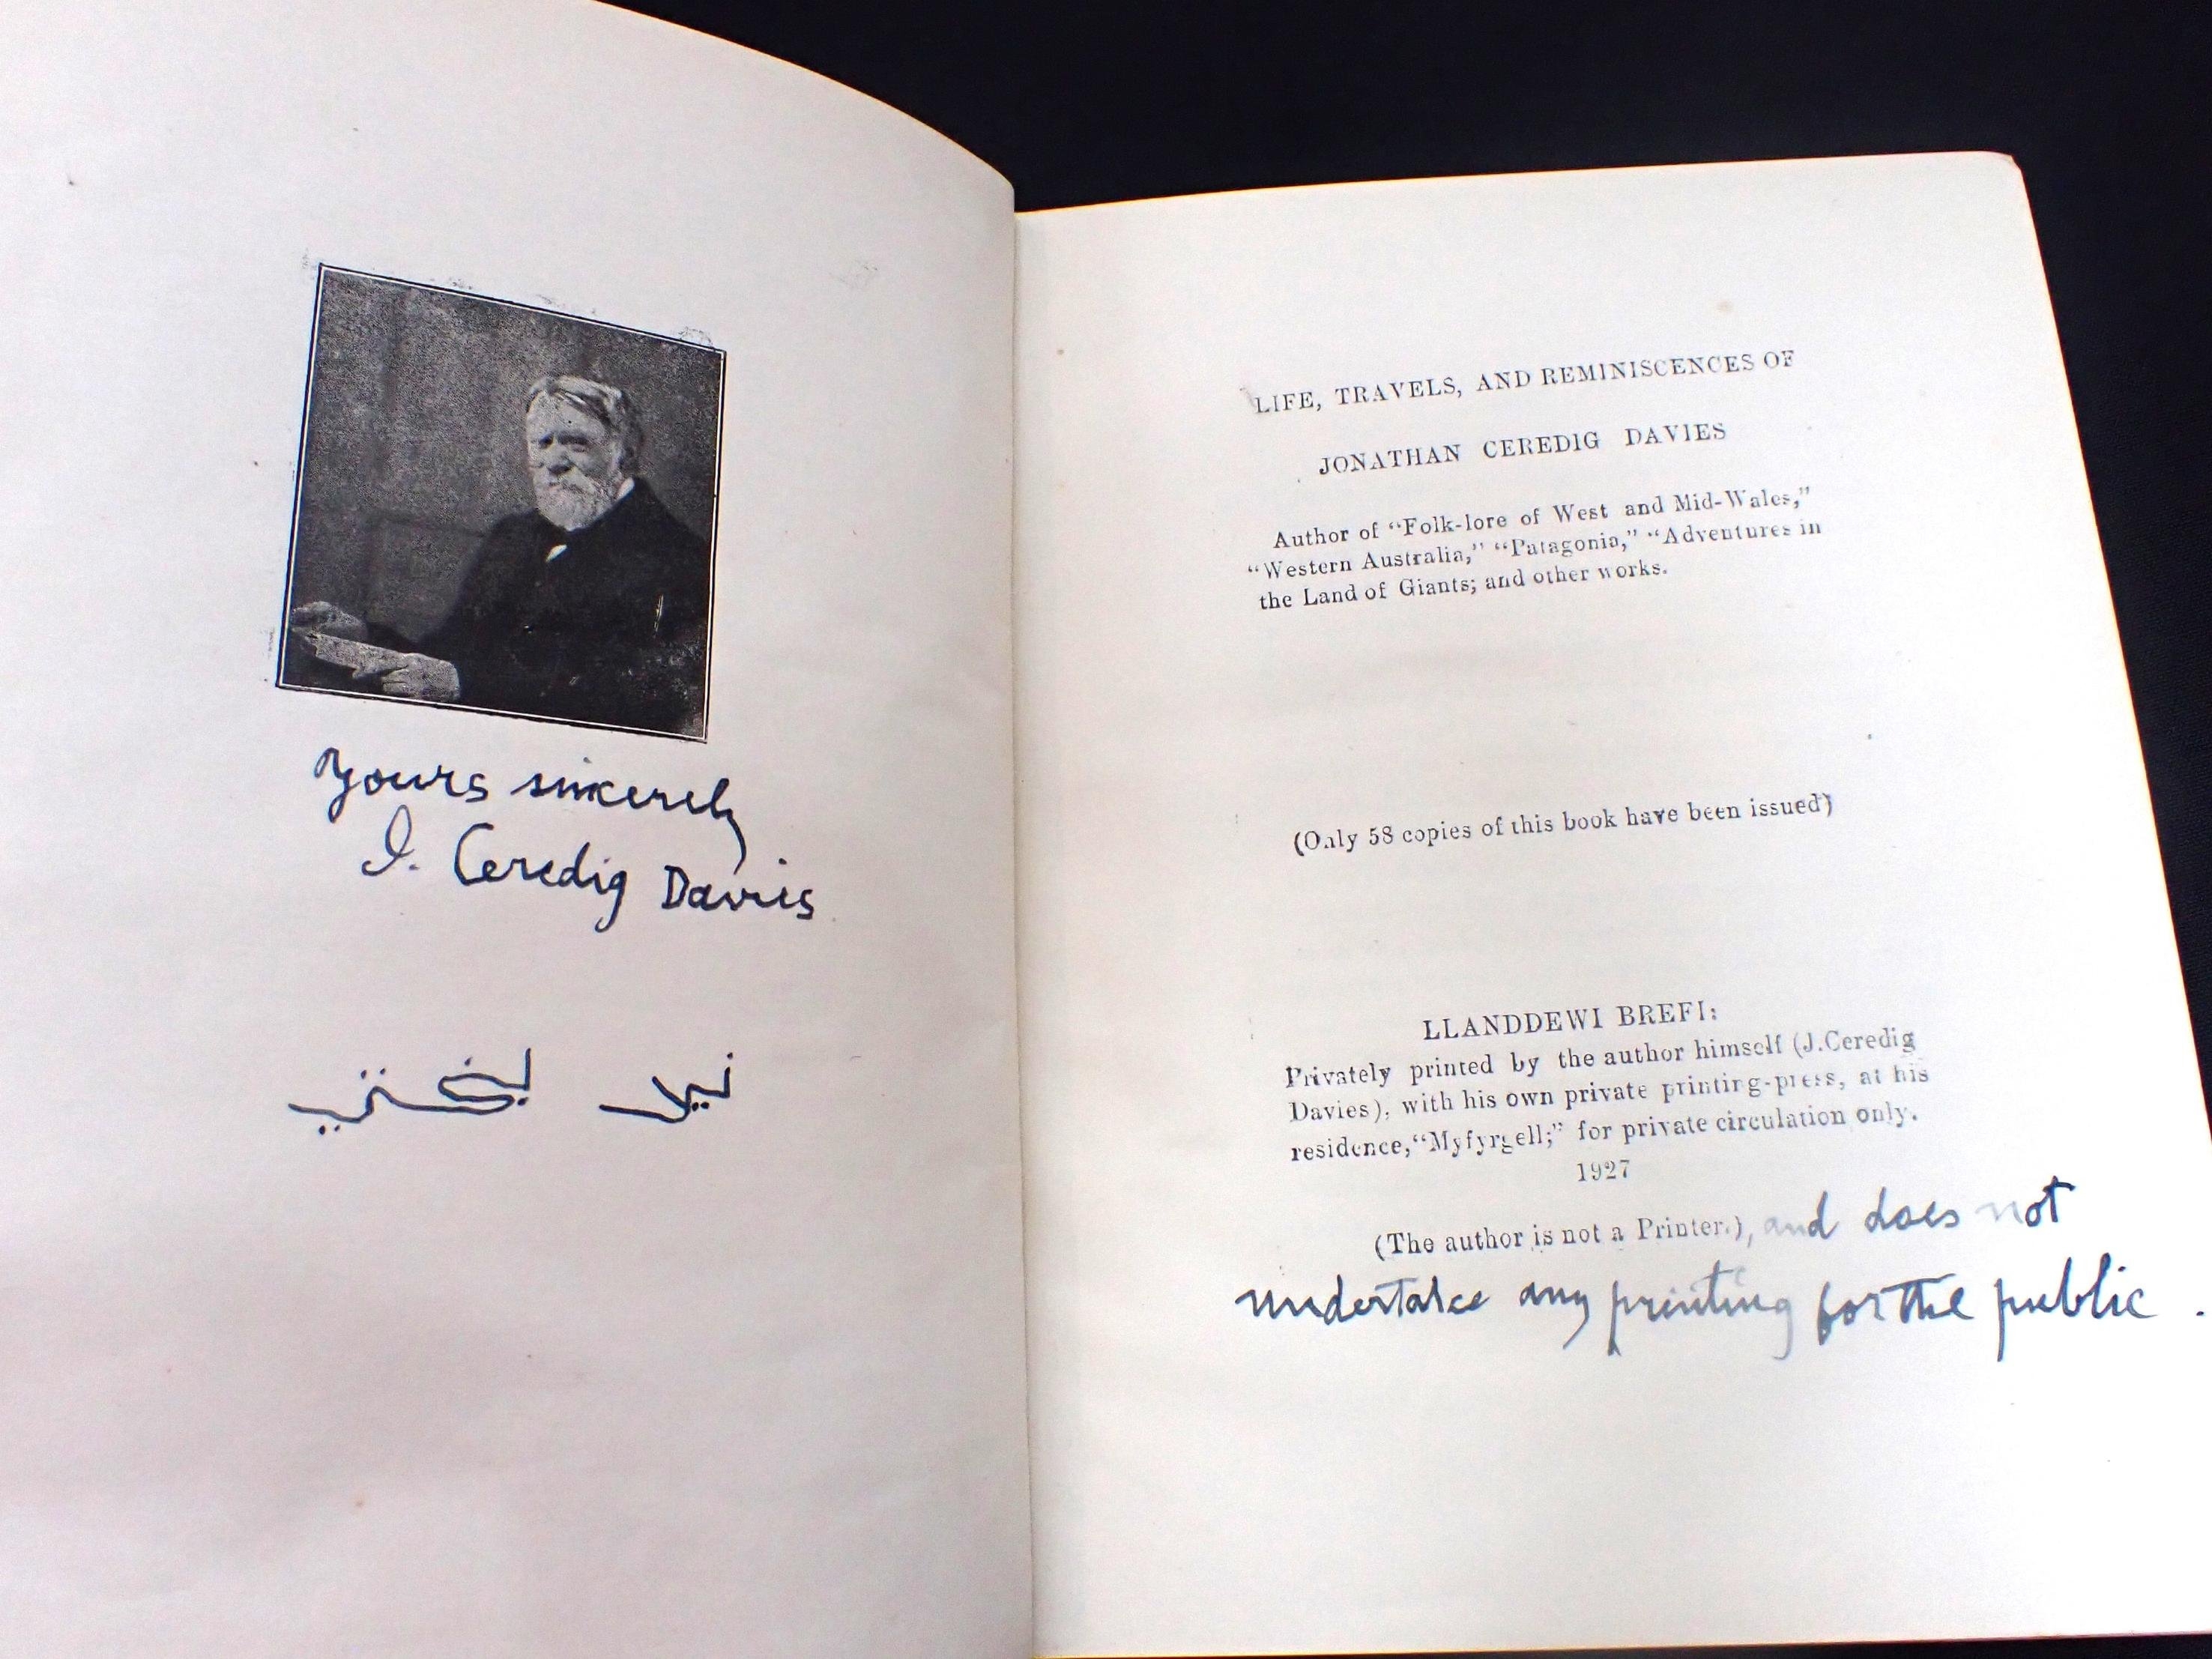 Yours sincerely
J. Ceredig Davies
LIFE, TRAVELS, AND REMINISCENCES OF
JONATHAN CEREDIG DAVIES
Author of “Folk-lore of West and Mid-Wales,”
“Western Australia,” “Patagonia,” “Adventures in
the Land of Giants; and other works.
(Only 58 copies of this book have been issued)
LLANDDEWI BREFI:
Privately printed by the author himself (J.Ceredig
Davies), with his own private printing-press, at his
residence,“Myfyrgell;” for private circulation only.
1927
(The author is not a Printer.), and does not
undertake any printing for the public.